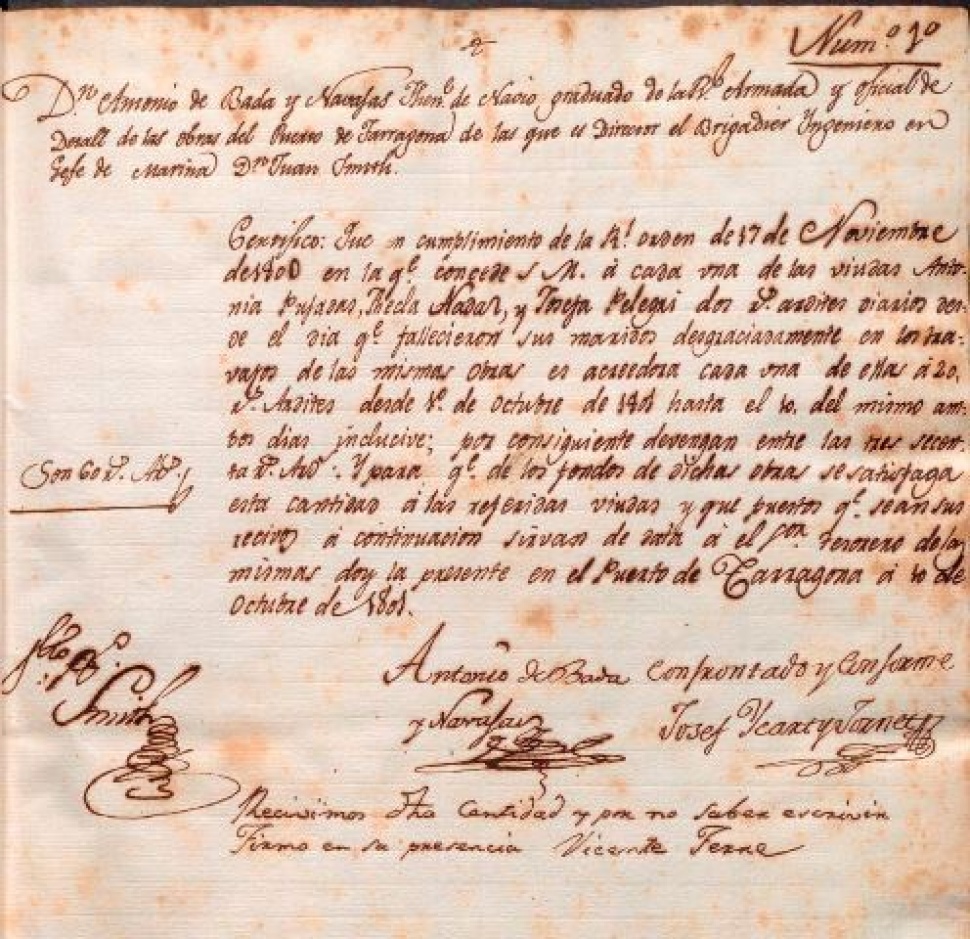 Num.º 1º
D.n Antonio de Bada y Navajas Then.e de Navio graduado de la R.l Armada y oficial de
Detall de las obras del Puerto de Tarragona de las que es Director el Brigadier Yngeniero en
Gefe de Marina D.n Juan Smith.
Certifico: Que en cumplimiento de la R.l orden de 17 de Noviembre
de 1800 en la q.e concede S M. á cada vna de las viudas Anto-
nia Pujadas, Thecla Nadal, y Josefa Pelegri dos r.s ardites diarios des-
de el dia q.e fallecieron sus maridos desgraciadamente en los tra-
vajos de las mismas obras es acreedora cada vna de ellas á 20.
r.s Ardites desde 1º. de Octubre de 1801 hasta el 10. del mismo am-
bos dias inclucive; por consiguiente devengan entre las tres secen-
ta r.s Ard.s Y para q.e de los fondos de dichas obras se satisfaga
Son 60 r.s Ard.s
esta cantidad á las referidas viudas y que puestos q.e sean sus
recivos á continuacion sirvan de data á el S.or Tesorero de las
mismas doy la presente en el Puerto de Tarragona á 10 de
Octubre de 1801.
Smith
Antonio de Bada Confrontado y Conforme
y Navajas Josef Ycart y Tornet
Recivimos dha Cantidad y por no saber escrivir
Firmo en su presencia Vicente Ferre